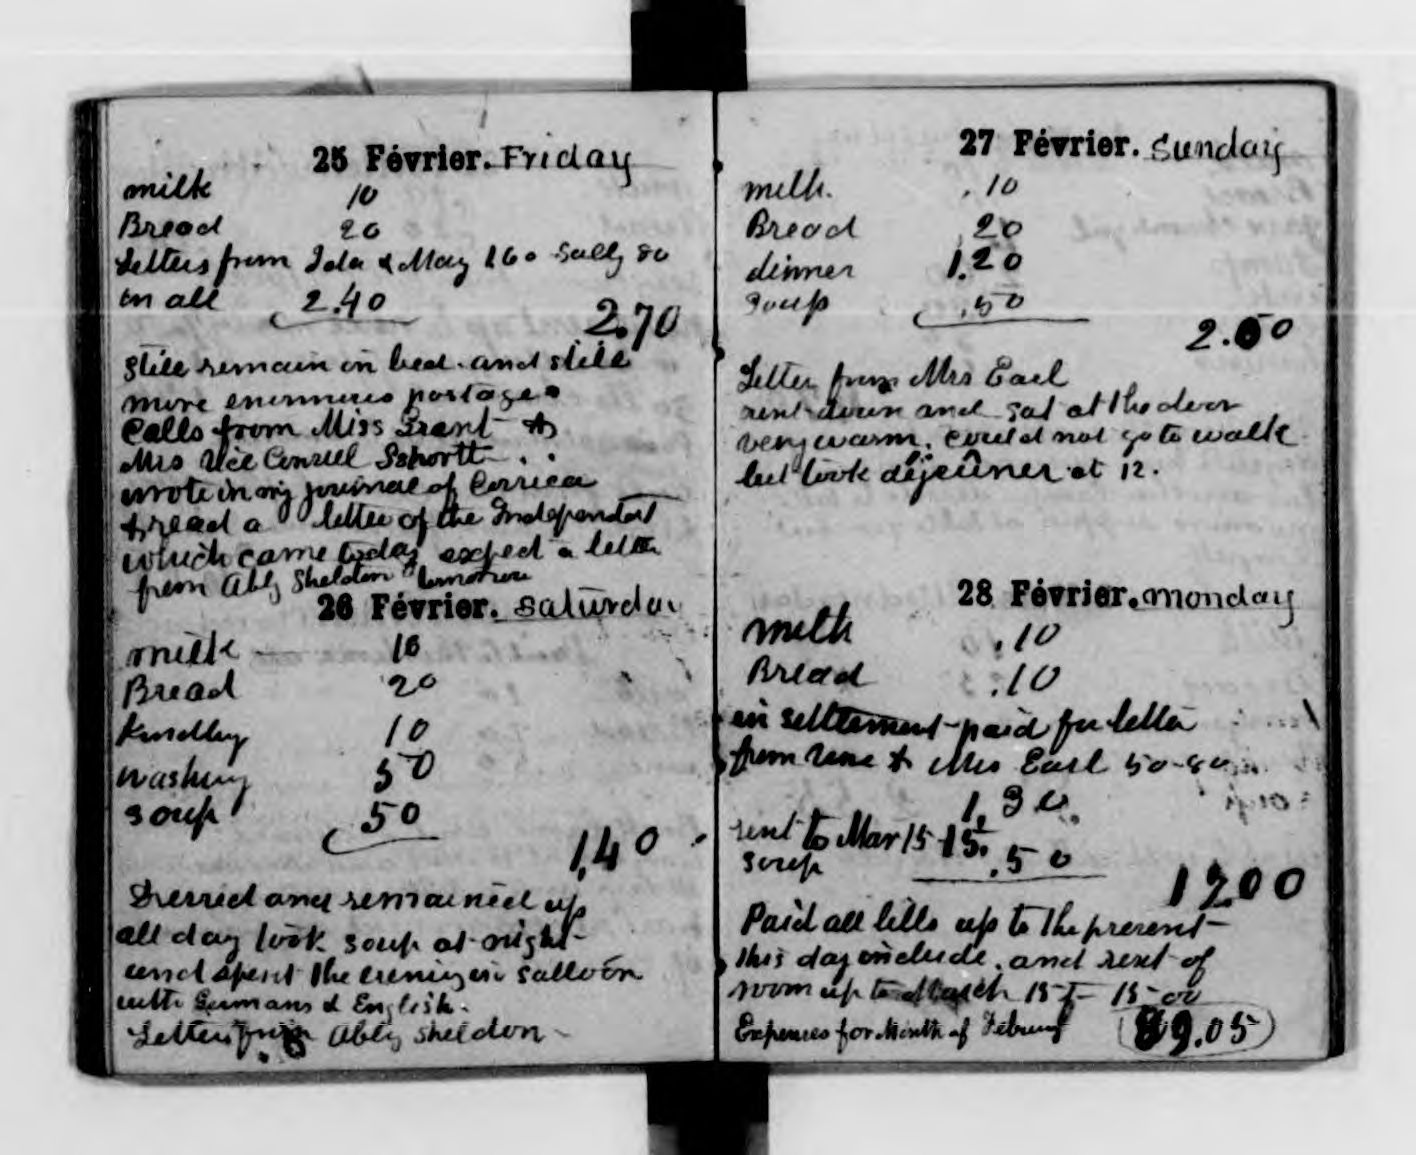 25 Février. Friday
milk 10
Bread 20
Letters from Ida & May 160 Sally 80
in all 2.40
2.70
still remain in bed. and still
more enormous postage.
Calls from Miss Grant &
Mrs Vice Consul Sshortt
wrote in my journal of Corsica
& read a letter of the Independent
which came today expect a letter
from Abby Sheldon tomorrow
26 Février. Saturday
milk 10
Bread 20
Kindling 10
Washing 50
Soup 50
1.40
Dressed and remained up
all day took soup at night
and spent the evening in salloon
with Germans & English.
Letters from Abby Sheldon
27 Février. Sunday
milk .10
Bread .20
dinner 1.20
soup .50
2.00
Letter from Mrs Earl
went down and sat at the door
very warm. could not go to walk
but took déjeûner at 12.
28 Février. monday
milk .10
Bread .10
in settlement paid for letter
from & Mrs Earl 50-80
1.30
rent to Mar 15 15.
soup .50
Paid all bills up to the present
this day include. and rent of
room up to March 15 15-00
Expenses for Month of February 89.05